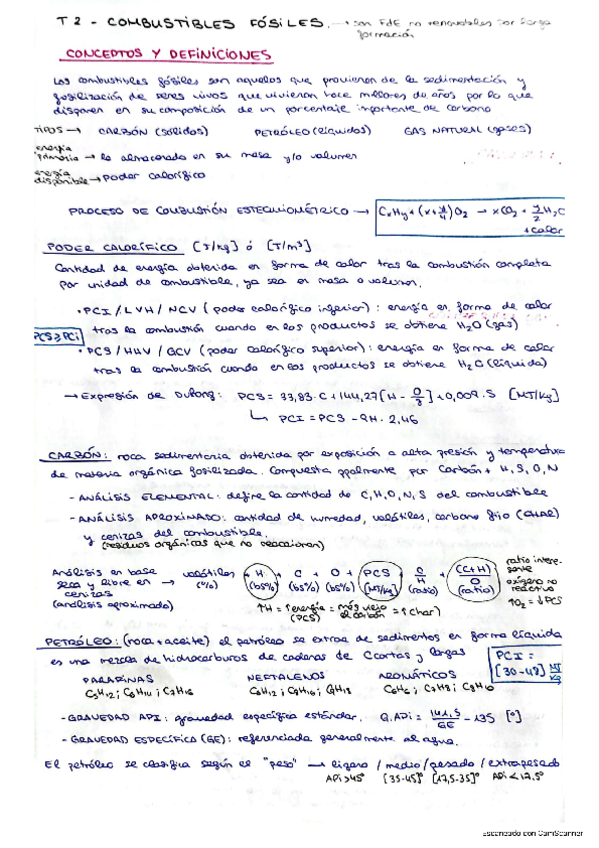 T2 - COMBUSTIBLES FÓSILES. → son FdE no renovables por larga
formación
CONCEPTOS Y DEFINICIONES
Los combustibles fósiles son aquellos que provienen de la sedimentación y
fosilización de seres vivos que vivieron hace millones de años por lo que
disponen en su composición de un porcentaje importante de carbono
TIPOS → CARBÓN (sólidos) PETRÓLEO (líquidos) GAS NATURAL (gases)
energía
primaria → la almacenada en su masa y/o volumen
energía
disponible → Poder calorífico
PROCESO DE COMBUSTIÓN ESTEQUIOMÉTRICO → CxHy + (x + y/4) O2 → xCO2 + y/2 H2O
+ calor
PODER CALORÍFICO [J/kg] ó [J/m³]
Cantidad de energía obtenida en forma de calor tras la combustión completa
por unidad de combustible, ya sea en masa o volumen.
• PCI / LVH / NCV (poder calorífico inferior): energía en forma de calor
tras la combustión cuando en los productos se obtiene H2O (gas)
PCS ≥ PCI
• PCS / HHV / GCV (poder calorífico superior): energía en forma de calor
tras la combustión cuando en los productos se obtiene H2O (líquida)
→ Expresión de Dulong: PCS = 33,83·C + 144,27 [H - O/8] + 0,009·S [MJ/kg]
↳ PCI = PCS - 9H · 2,46
CARBÓN: roca sedimentaria obtenida por exposición a alta presión y temperatura
de materia orgánica fosilizada. Compuesta ppalmente por Carbón + H, S, O, N
- ANÁLISIS ELEMENTAL: define la cantidad de C, H, O, N, S del combustible
- ANÁLISIS APROXIMADO: cantidad de humedad, volátiles, carbono fijo (CHAR)
y cenizas del combustible.
(residuos orgánicos que no reaccionan)
ratio intere-
sante
Análisis en base
seca y libre en →
cenizas
(análisis aproximado)
volátiles + H + C + O + PCS O/H (C+H)/O
(%) (bs%) (bs%) (bs%) [MJ/kg] (ratio) (ratio)
oxígeno no
reactivo
↑O2 = ↓PCS
↑H = ↑energía = más viejo = ↑(char)
(PCS) el carbón
PETRÓLEO: (roca + aceite) el petróleo se extrae de sedimentos en forma líquida
es una mezcla de hidrocarburos de cadenas de C cortas y largas
PCI =
[30-48] MJ/kg
PARAFINAS NEFTALENOS AROMÁTICOS
C5H12; C6H14; C7H16 C6H12; C7H14; C8H18 C6H6; C7H8; C8H10
- GRAVEDAD API: gravedad específica estándar. G.API = 141,5/GE - 135 [°]
- GRAVEDAD ESPECÍFICA (GE): referenciada generalmente al agua.
El petróleo se clasifica según el "peso" → ligero / medio / pesado / extrapesado
API > 45° [35-45]° [17,5-35]° API < 17,5°
Escaneado con CamScanner